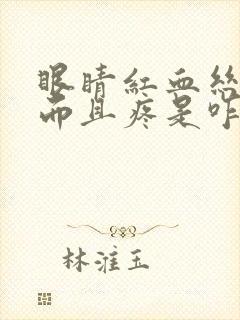 眼睛紅血絲
而且疼是咋
林淮玉